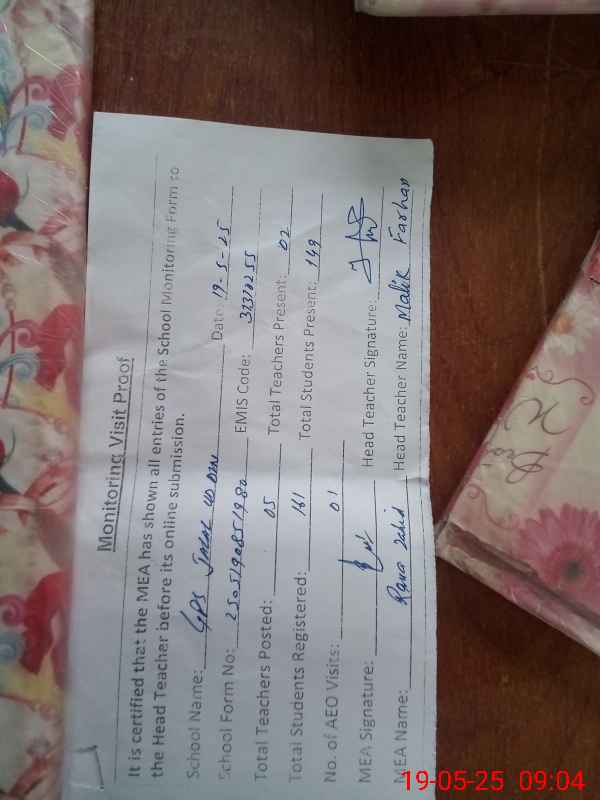 Monitoring Visit Proof
It is certified that the MEA has shown all entries of the School Monitoring Form to
the Head Teacher before its online submission.
School Name: GPS Jalal ud Din Date: 19-5-25
School Form No: EMIS Code:
Total Teachers Posted: 05 Total Teachers Present: 02
Total Students Registered: 161 Total Students Present: 149
No. of AEO Visits: 01
MEA Signature: Head Teacher Signature:
MEA Name: Rana Zahid Head Teacher Name: Malik Farhan
19-05-25 09:04